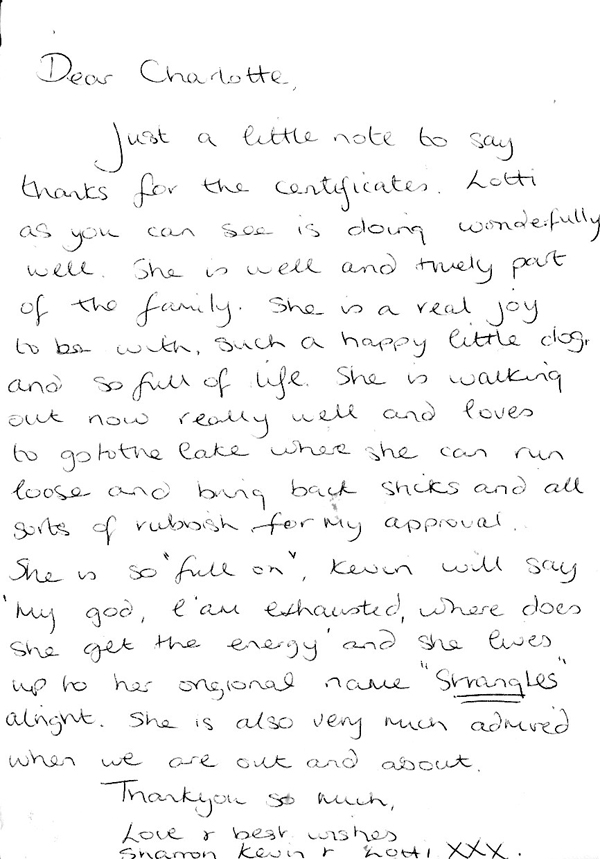 Dear Charlotte,
Just a little note to say
thanks for the certificates. Lotti
as you can see is doing wonderfully
well. She is well and truely part
of the family. She is a real joy
to be with, such a happy little dog,
and so full of life. She is walking
out now really well and loves
to go to the lake where she can run
loose and bring back sticks and all
sorts of rubbish for my approval.
She is so "full on", Kevin will say
'My god, I'am exhausted, where does
she get the energy' and she lives
up to her origional name "Strangles"
alright. She is also very much admired
when we are out and about.
Thankyou so much,
Love & best wishes
Sharron Kevin & Lotti XXX.